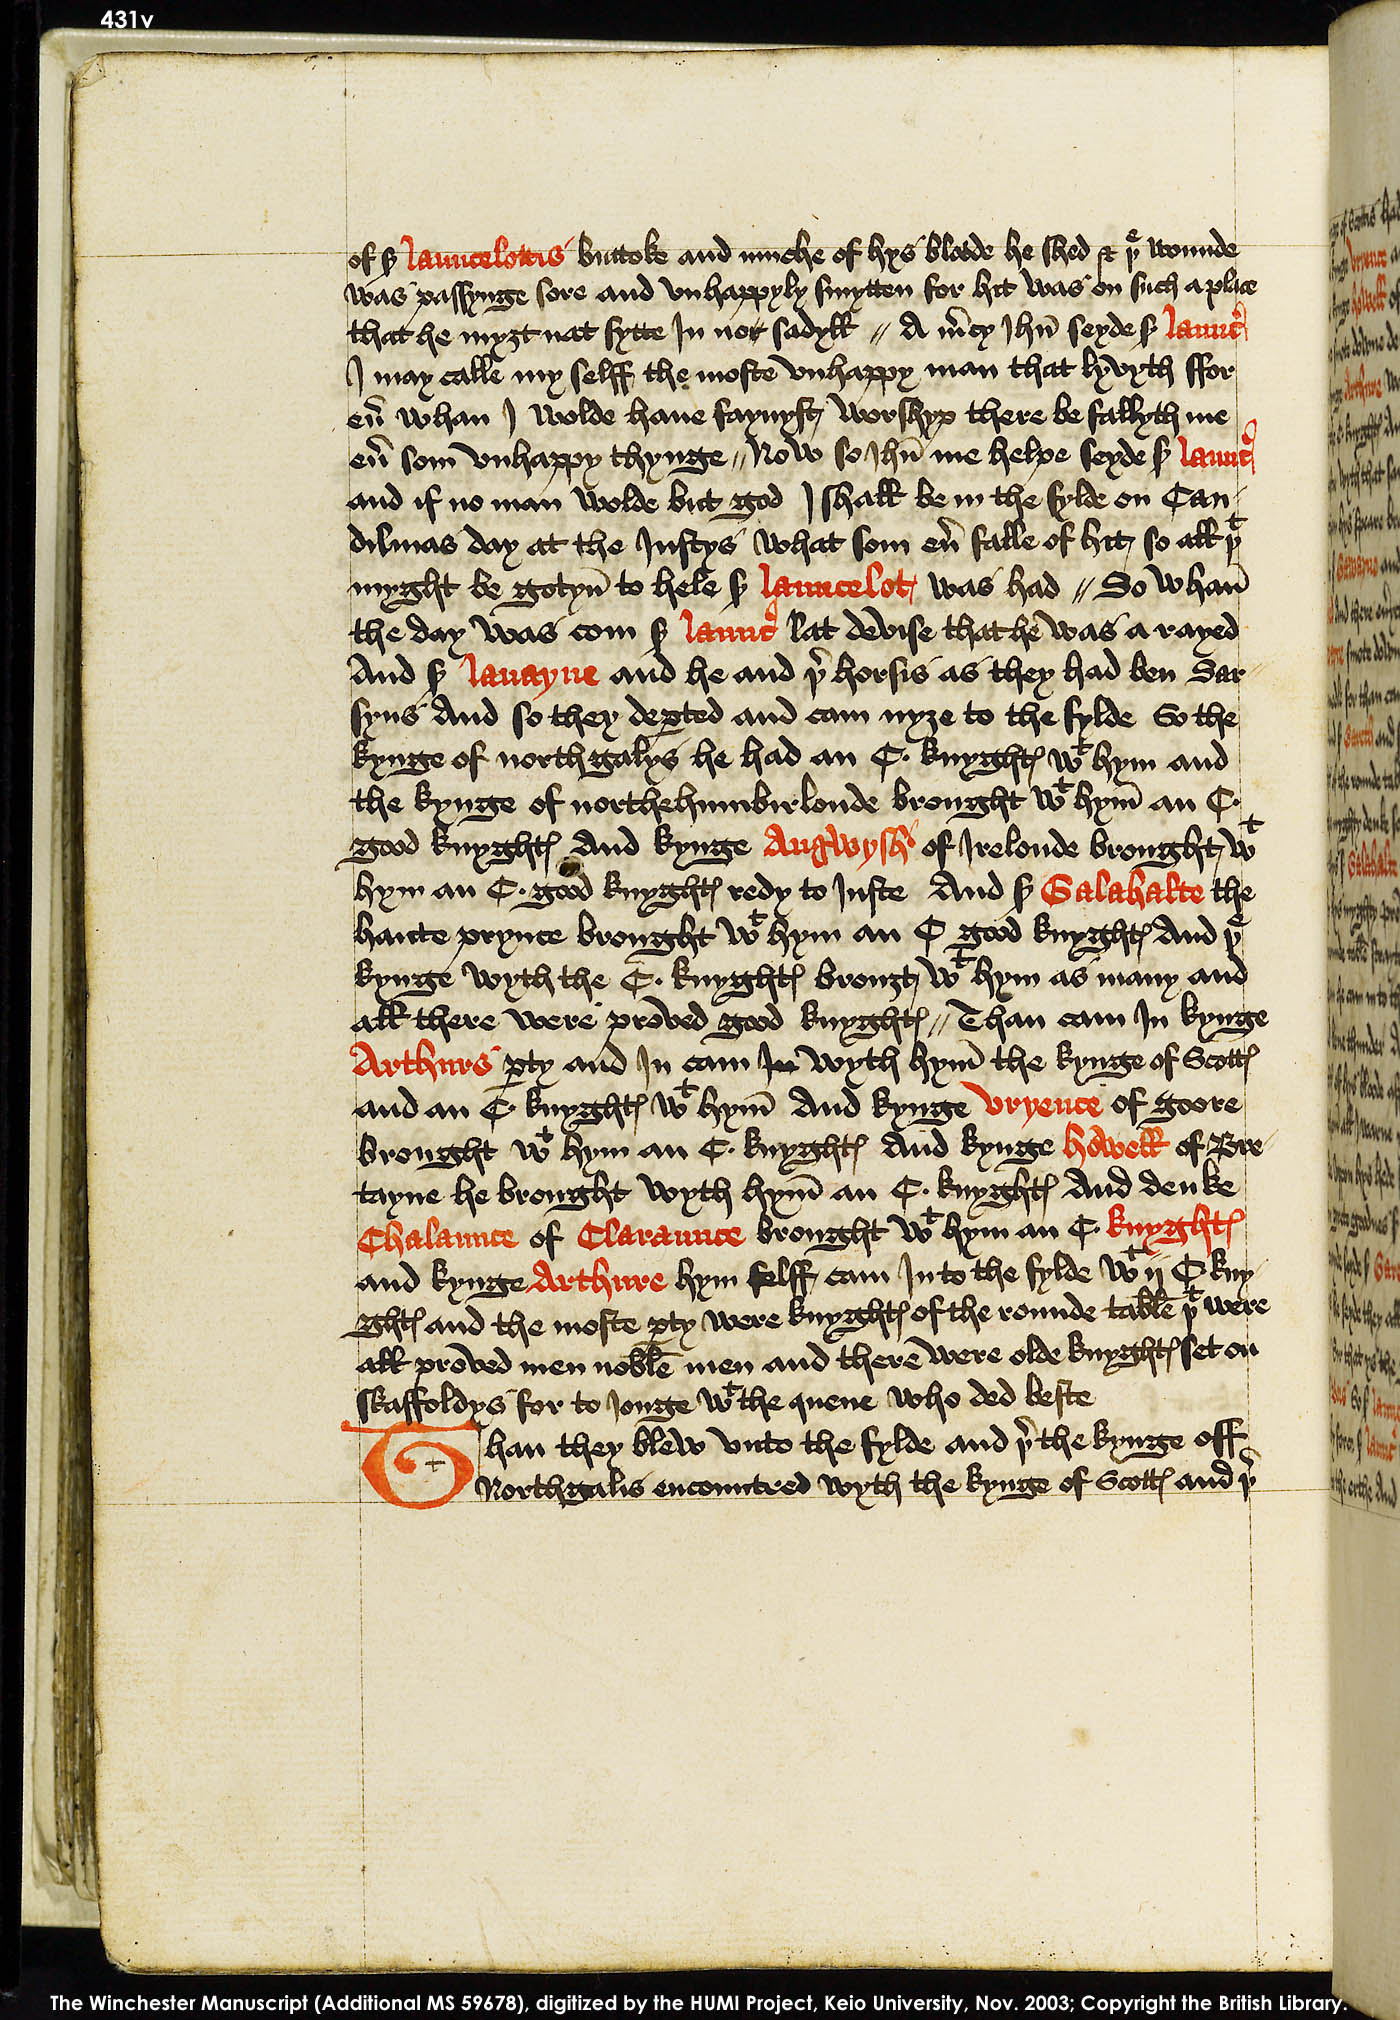 431v
of ẜ launcelottis buttoke and muche of hys bloode he shed & þͤ wounde
was passynge sore and vnhappyly smytten for hit was on such a place
that he myȝt nat sytte In no sadyll // A m̄cy Jhū seyde ẜ launc̉
I may calle my selff the moste vnhappy man that lyvyth ffor
eũ whan I wolde haue faynyst worshyp there be fallyth me
eũ som vnhappy thynge // Now so Jhū me helpe seyde ẜ launc̉
and if no man wolde but god I shall be in the fylde on Can-
dilmas day at the Justys what som eũ falle of hit so all þͭ
myght be gotyn̄ to hele ẜ launcelot was had // So whan̄
the day was com ẜ launc̉ lat devise that he was a rayed
And ẜ lauayne and he and þ̉ horsis as they had ben Sar-
syns And so they deꝑted and cam nyȝe to the fylde So the
kynge of north galys he had an C. knyghtꝭ wͭ hym and
the kynge of northehumbirlonde brought wͭ hym̄ an C.
good knyghtꝭ And kynge Angwysh̄ of Irelonde brought wͭ
hym an C. good knyghtꝭ redy to Juste And ẜ Galahalte the
haute prynce brought wͭ hym an C good knyghtꝭ And þͤ
kynge wyth the C. knyghtꝭ brouȝt wͭ hym as many and
all there were proved good knyghtꝭ // Than cam In kynge
Arthurs ꝑty and In cam In wyth hym̄ the kynge of Scottꝭ
and an C. knyghtꝭ wͭ hym̄ And kynge vryence of goore
brought wͭ hym an C. knyghtꝭ And kynge howell of Bre-
tayne he brought wyth hym̄ an C. knyghtꝭ And deuke
Chalaunce of Claraunce brought wͭ hym an C. knyghtꝭ
and kynge Arthure hym selff cam In to the fylde wͭ ij C kny-
ghtꝭ and the moste ꝑty were knyghtꝭ of the rounde table þͭ were
all proved men noble men and there were olde knyghtꝭ set on
skaffoldys for to Jouge wͭ the quene who ded beste
Than they blew vnto the fylde and þ̉ the kynge off
Northgalis encountred wyth the kynge of Scottꝭ and þ̉
The Winchester Manuscript (Additional MS 59678), digitized by the HUMI Project, Keio University, Nov. 2003; Copyright the British Library.